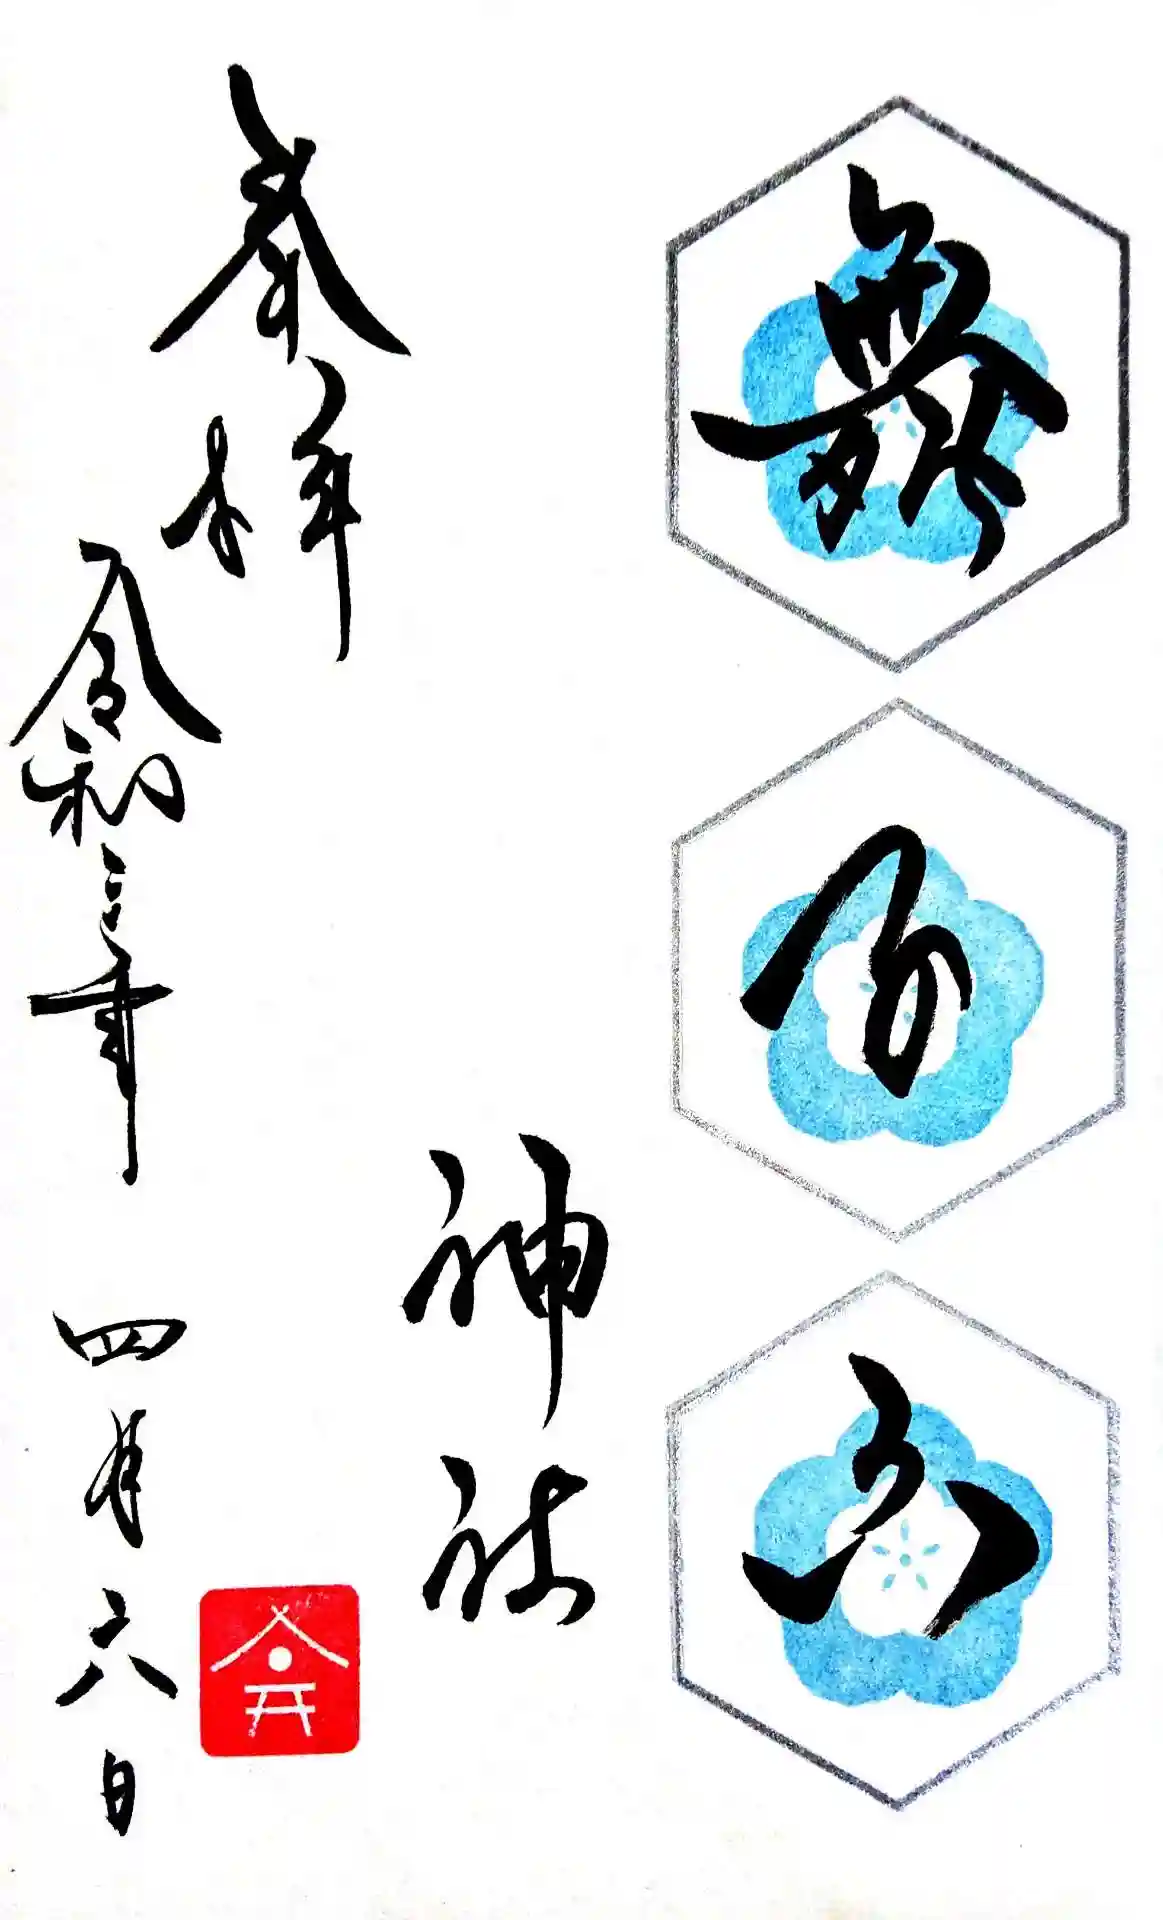 舞子六
神社
奉拝
令和三年 四月六日